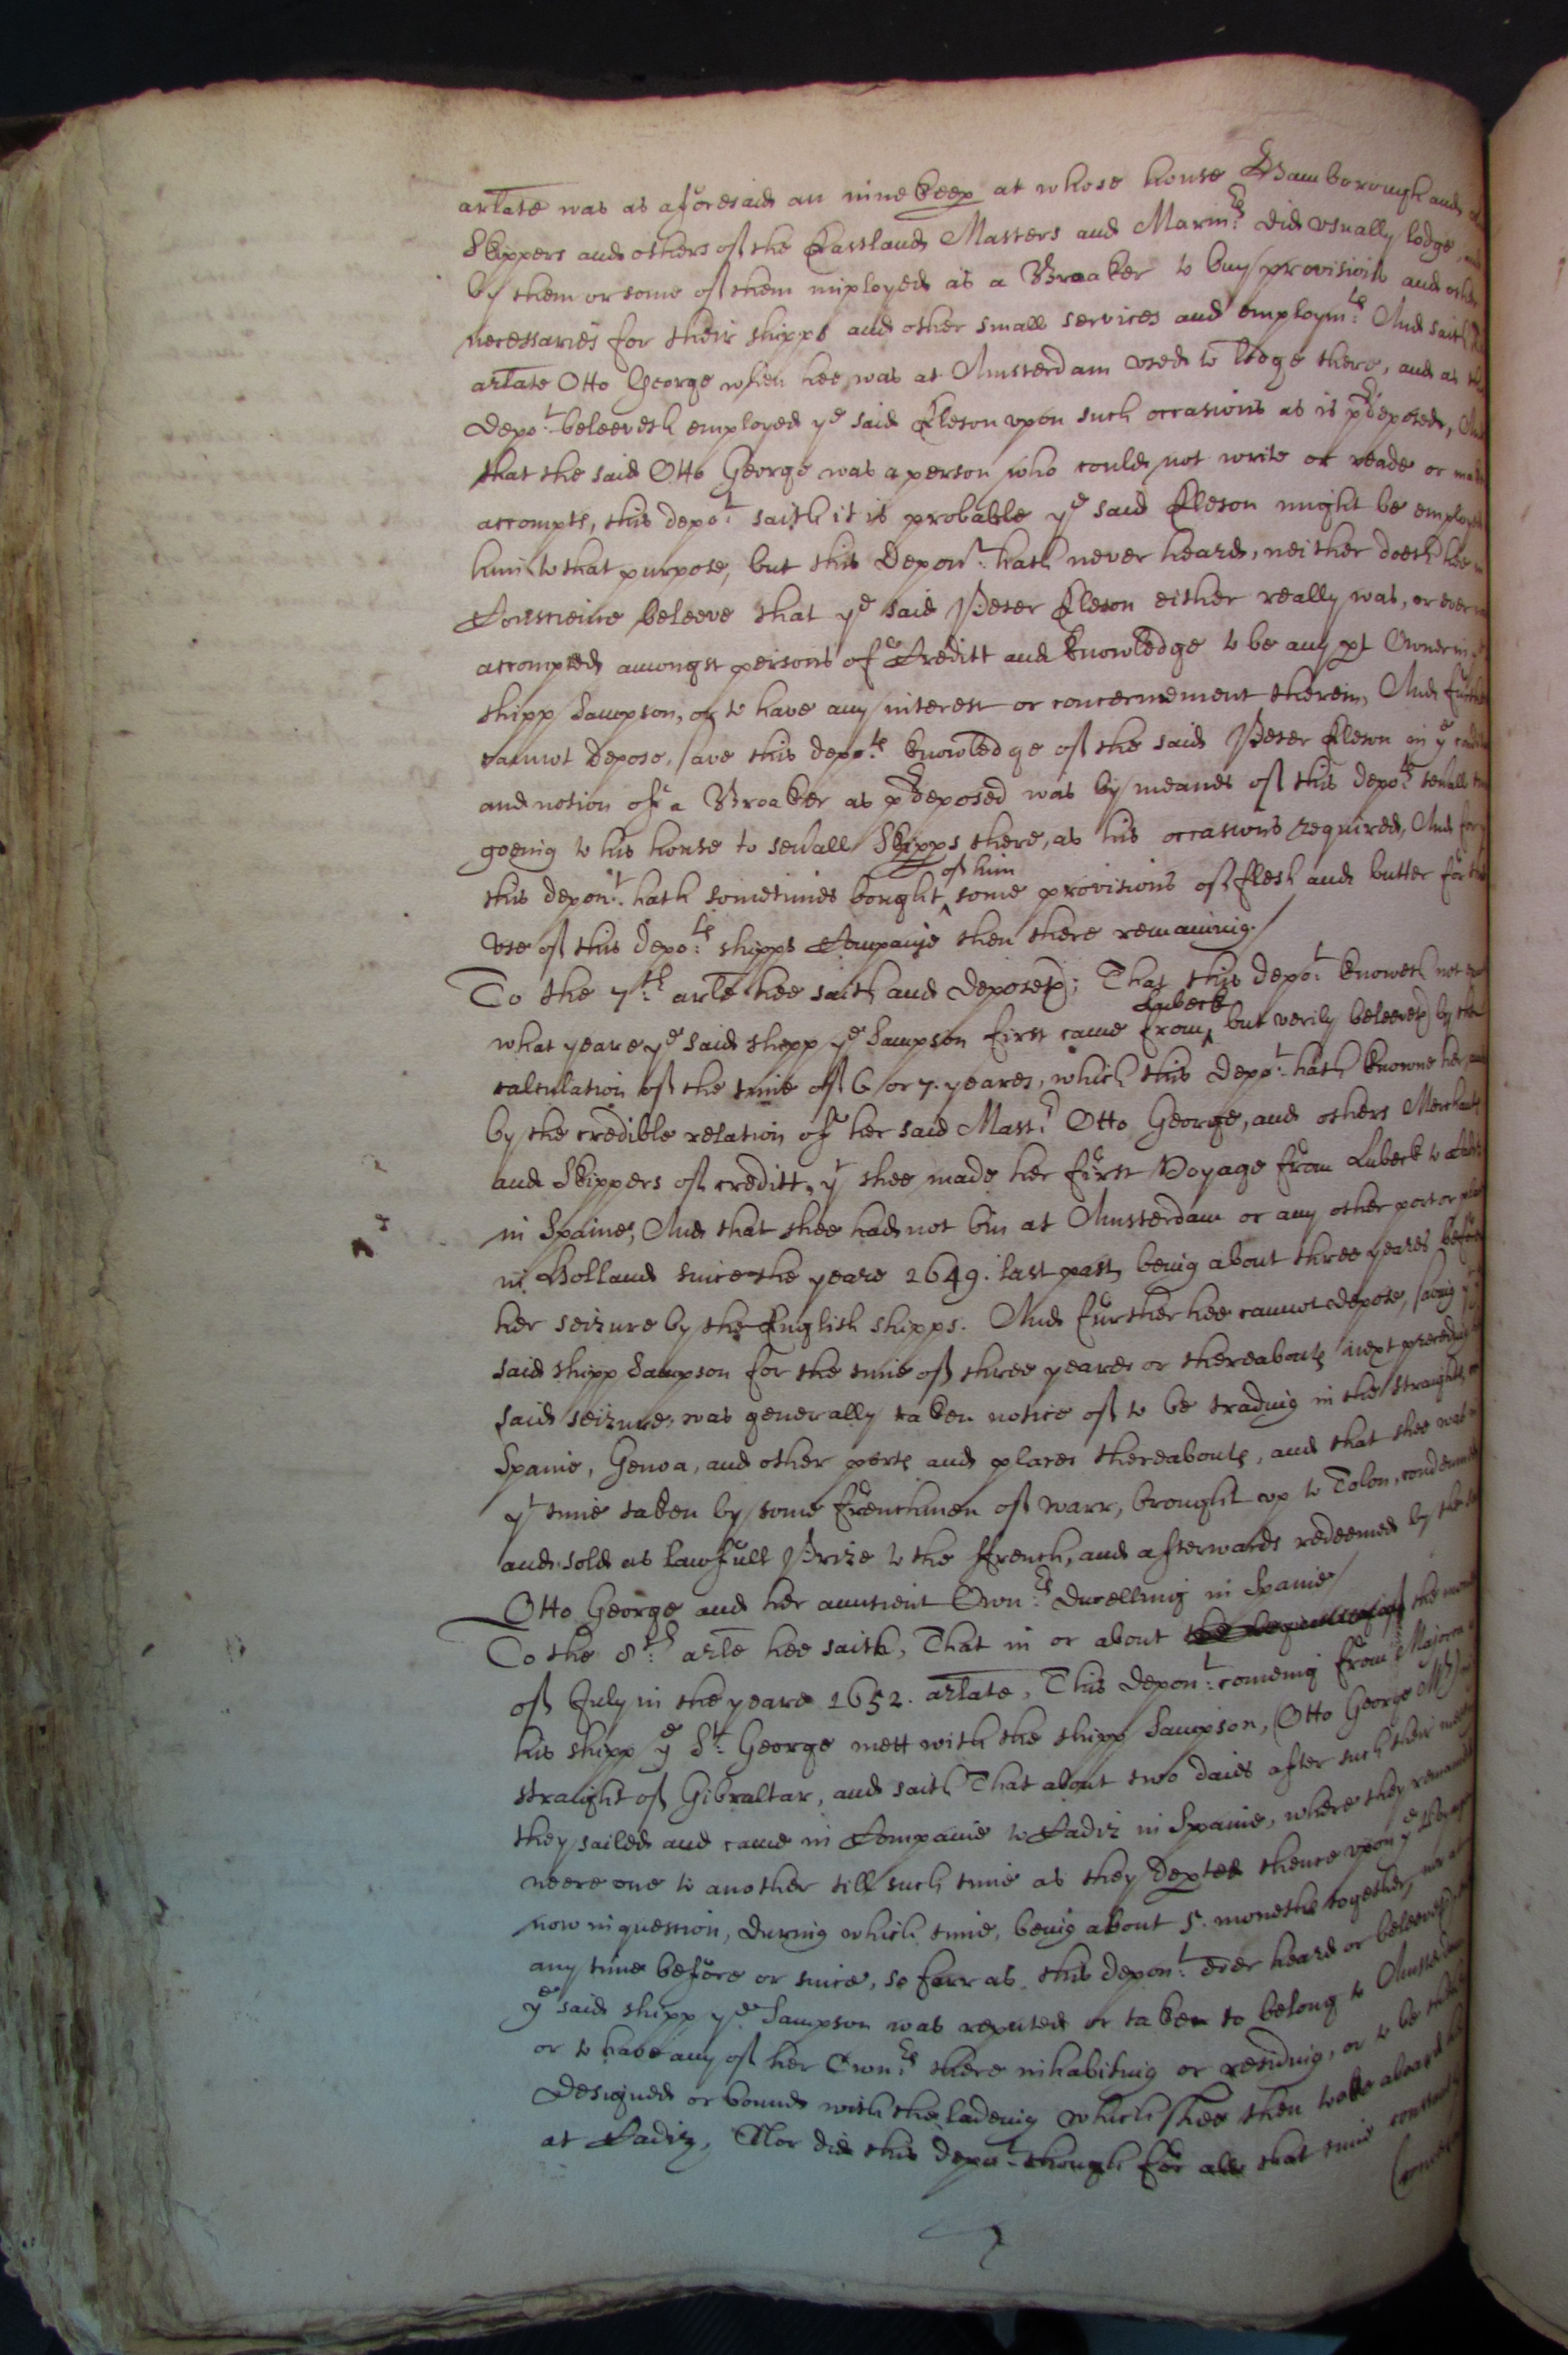 arlate was as aforesaid an inne keep at whose house Hamborough and
Skippers and others of the Eastland Masters and Marin:rs did usually lodge,
by them or some of them imployed as a Broaker to buy provisions and other
necessaries for their shipps and other small services and employm:ts And saith
arlate Otto George when hee was at Amsterdam used to lodge there, and as
depo:t beleeveth employed ye said Eleson upon such occasions as is p:rdeposed, And
that the said Otto George was a person who could not write or reade or make
accompts, this depo:t saith it is probable ye said Eleson might be employed
him to that purpose, but this Depon:t hath never heard, neither doeth hee in
Conscience beleeve that ye said Peter Eleson either really was, or ever was
accompted amongst persons of Creditt and knowledge to be any pt Owner in
shipp Sampson, or to have any interest or concernement therein, And further
cannot depose, save this depo:ts knowledge of the said Peter Eleson in ye
and notion of a Broaker as p:rdeposed was by meanes of this depo:ts severall
goeing to his house to severall Skipps there, as his occasions required, And
this depon:t hath sometimes bought ^ of him some provisions of flesh and butter for the
use of this depo:ts shipps Companie then there remaining./
To the 7:th arle hee saith and deposeth; That this depo:t knoweth not
what yeare ye said shipp ye Sampson first came from ^ Lubeck but verily beleeveth by the
calculation of the time of 6 or 7. yeares, which this depo:t hath knowne her, and
by the credible relation of her said Mast:r Otto George, and others Merchants
and Skippers of creditt, yt shee made her first Voyage from Lubeck to
in Spaine, And that shee had not bin at Amsterdam or any other port or place
in Holland since the yeare 1649. last past, being about three yeares before
her seizure by the English shipps. And further hee cannot depose, saving yt
said shipp Sampson for the time of three yeares or thereabouts next preceding
said seizure, was generally taken notice of to be trading in the Straights,
Spaine, Genoa, and other ports and places thereabouts, and that shee was
yt time taken by some frenchmen of warr, brought up to Tolon, condemned
and sold as lawfull Prize to the ffrench, and afterwards redeemed by the
Otto George and her auncient Own:rs dwelling in Spaine/
To the 8:th arle hee saith, That in or about the month
of July in the yeare 1652. arlate, This depon:t comeing from Majorca
his shipp ye S:t George mett with the shipp Sampson, (Otto George M:r)
straight of Gibraltar, and saith That about two daies after such their meeting
they sailed and came in Companie to Cadiz in Spaine, where they remained
neere one to another till such time as they depted thence upon ye Voyage
now in question, during which time, being about 5. moneths together, nor at
any time before or since, so farr as this depon:t ever heard or beleeveth
ye said shipp ye Sampson was reputed or taken to belong to Amsterdam
or to have any of her Own:rs there inhabiting or residing, or to be
designed or bound with the ladeing which shee then tooke aboard
at Cadiz, Nor did this depo:t though for all that time constantly